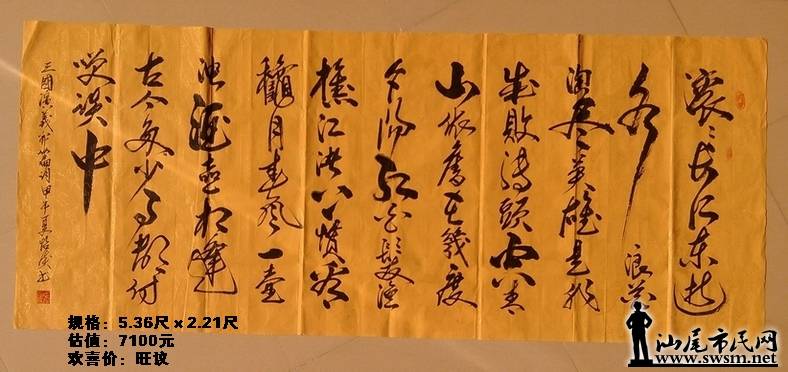 滚〻长江东逝
水 浪花
淘尽英雄是非
成败转头空青
山依舊在幾度
夕阳红白髮渔
樵江渚上惯看
龝月春风一壶
浊酒喜相逢
古今多少事都付
笑谈中
三國演義开篇词甲午夏书
规格：5.36尺×2.21尺
估值：7100元
欢喜价：旺议
汕尾市民网
www.swsm.net